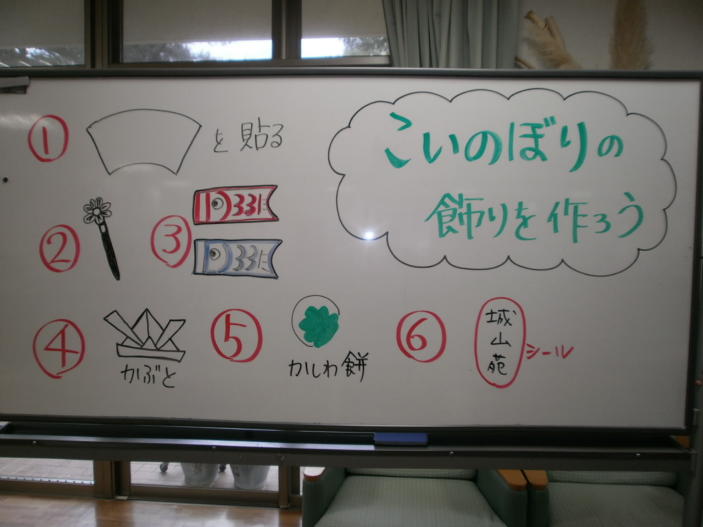 こいのぼりの
飾りを作ろう
① を貼る
②
③
④ かぶと
⑤ かしわ餅
⑥ 城山苑 シール